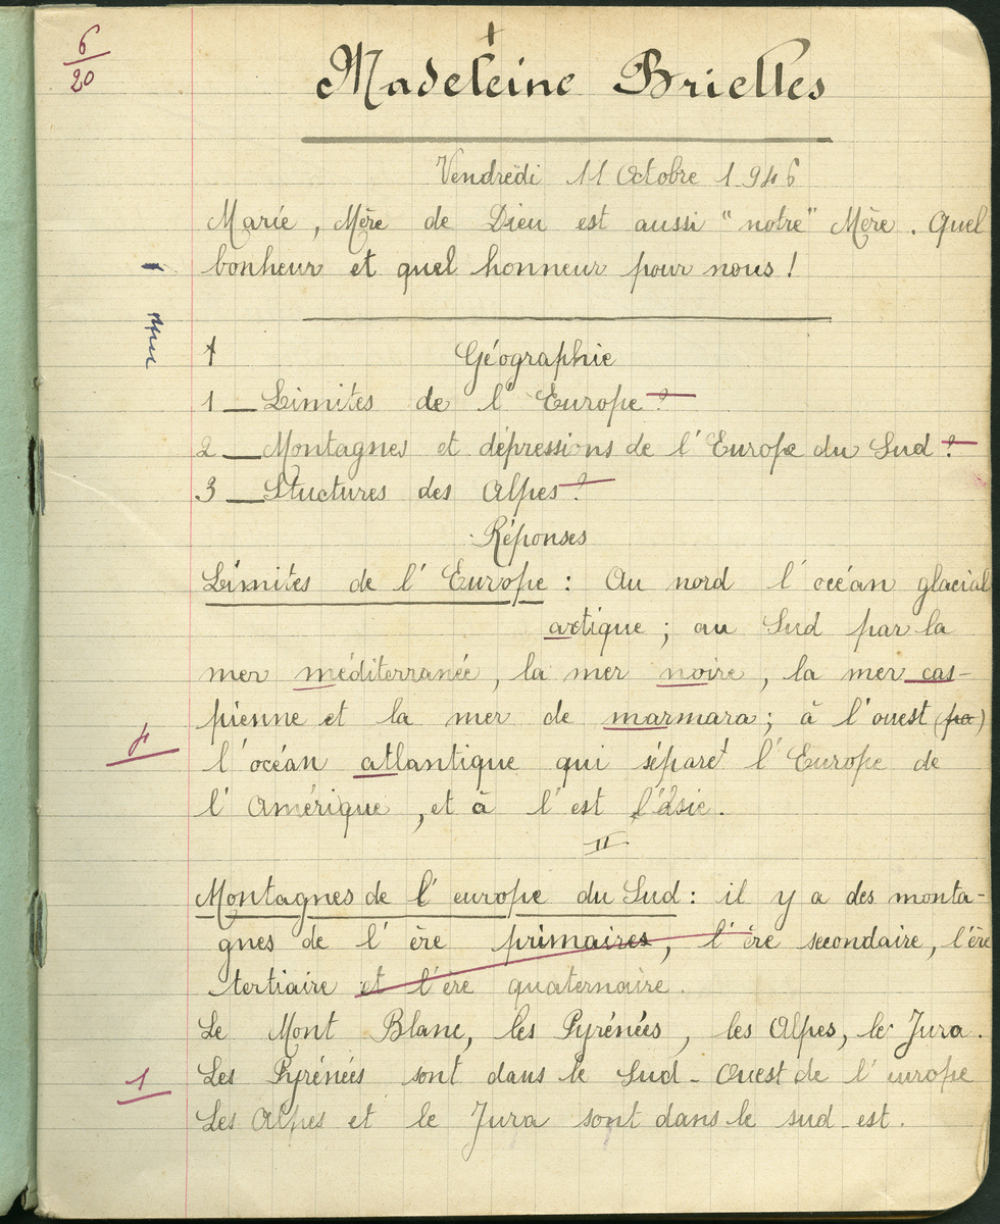 6
20
Madeleine Brielles
Vendrëdi 11 Octobre 1946
Marie, Mère de Dieu est aussi "notre" Mère. Quel
bonheur et quel honneur pour nous !
Géographie
1_Limites de l'Europe ?
2_Montagnes et dépressions de l'Europe du Sud ?
3_Stuctures des Alpes ?
Réponses
Limites de l'Europe : Au nord l'océan glacial
artique ; au Sud par la
mer méditerranée, la mer noire, la mer cas-
pienne et la mer de marmara ; à l'ouest (pa)
l'océan atlantique qui séparet l'Europe de
l'Amérique, et à l'est l'Asie.
II
Montagnes de l'europe du Sud : il y a des monta-
gnes de l'ère primaires, l'ère secondaire, l'ère
tertiaire et l'ère quaternaire.
Le Mont Blanc, les Pyrénées, les Alpes, le Jura.
1
Les Pyrénées sont dans le Sud-Ouest de l'europe
Les Alpes et le Jura sont dans le sud-est.